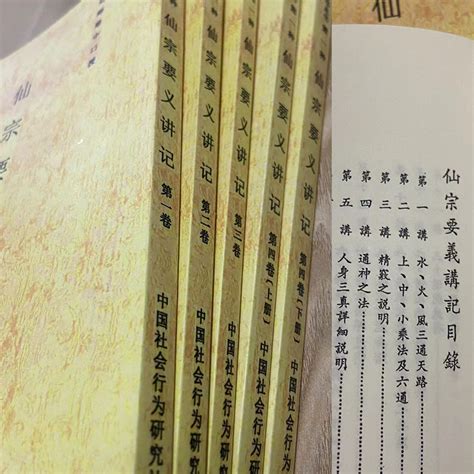 仙宗要
仙宗要义讲记 第一卷 中国社会行为研究
仙宗要义讲记 第二卷 中国社会行为研究
仙宗要义讲记 第三卷 中国社会行为研究
仙宗要义讲记 第四卷(上册) 中国社会行为研
仙宗要义讲记 第四卷(下册) 中国社会行为研
仙
仙宗要義講記目錄
第一講 水、火、風三通天路……
第二講 上、中、小乘法及六通……
第三講 精竅之說明……
第四講 通神之法……
第五講 人身三真詳細說明……